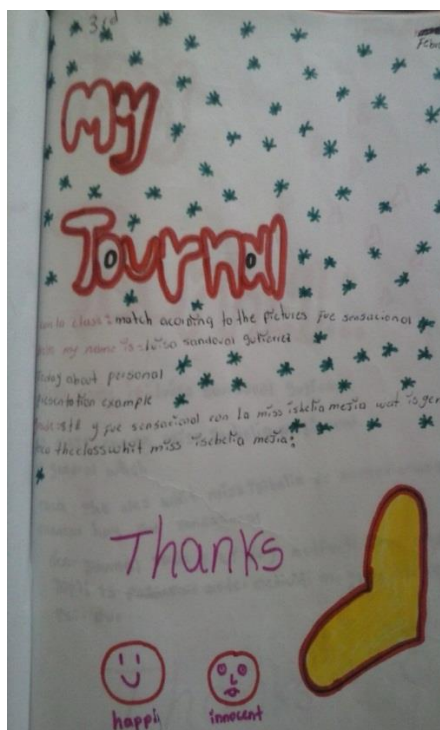 3rd
My
Journal
class 2 match acording to the pictures fue sensacional
my name is luisa sandoval gutierrez
about personal
example
y fue sensacional con la miss ischelia mejia wat is
the class whit miss ischelia mejia:
Thanks
happi
innocent